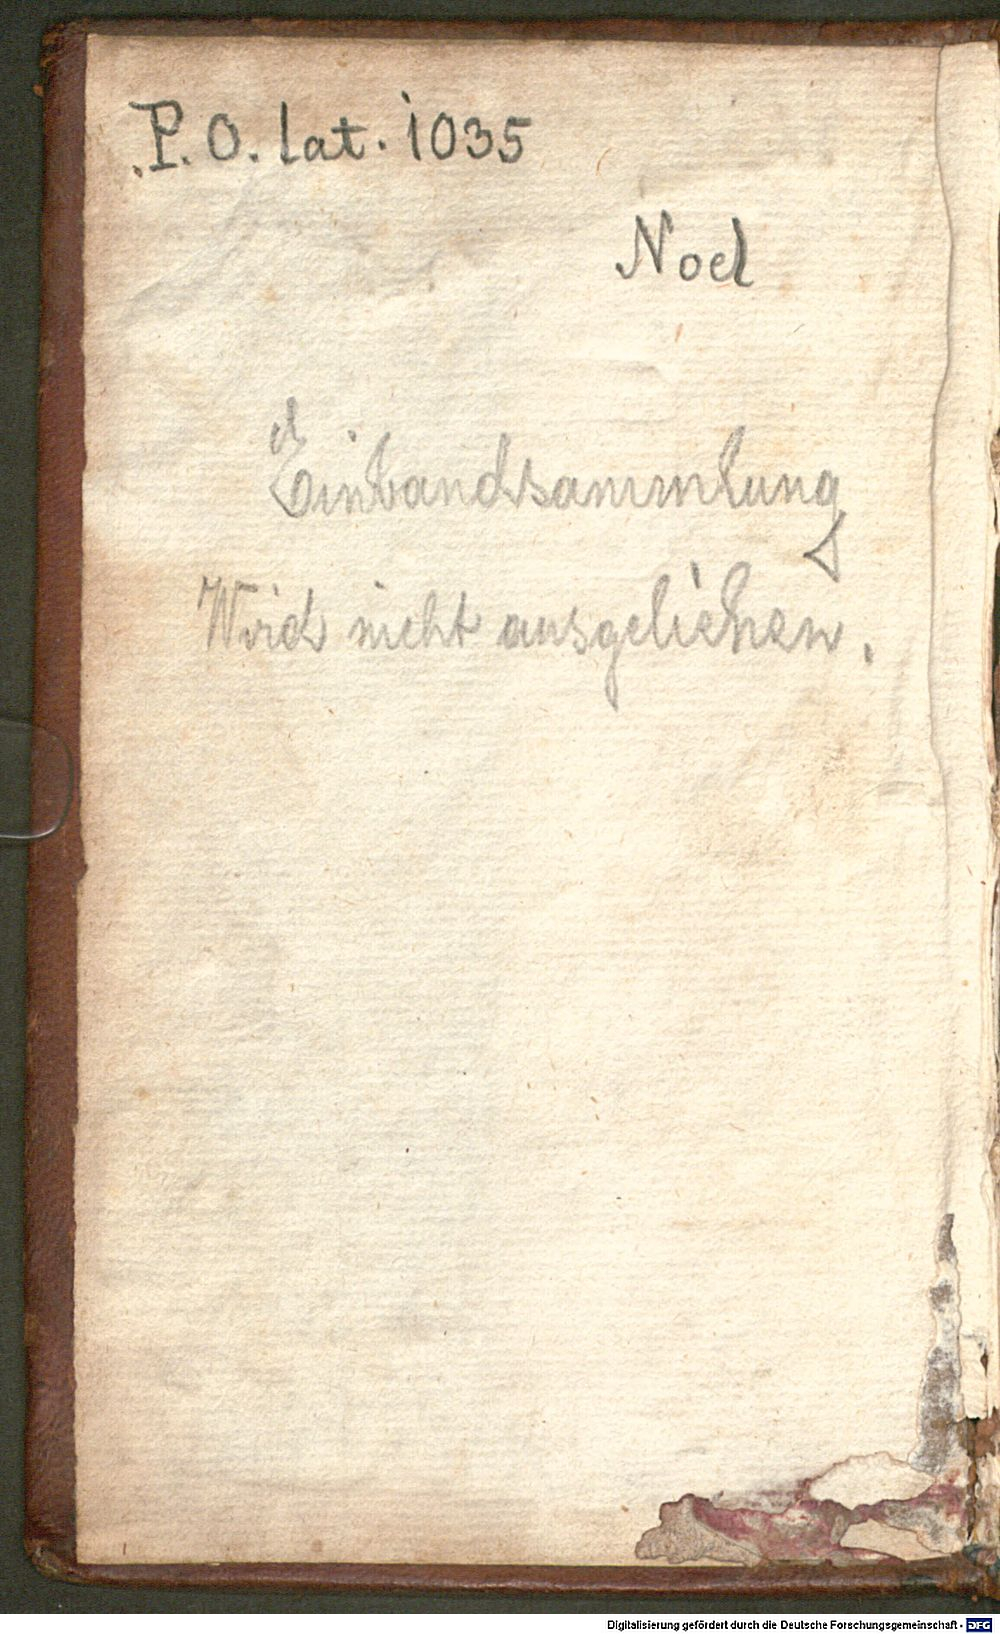 P. O. lat. 1035
Noel
Einbandsammlung
Wird nicht ausgeliehen.
Digitalisierung gefördert durch die Deutsche Forschungsgemeinschaft - DFG